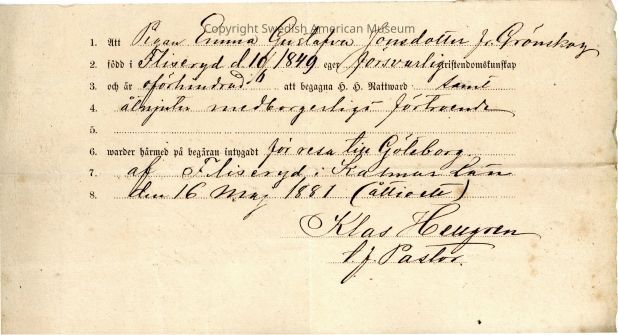 Copyright Swedish American Museum
1. Att Pigan Emma Gustafva Jonsdotter fr. Grönskog
2. född i Fliseryd d. 10/6 1849 eger försvarlig kristendomskunskap
3. och är oförhindrad att begagna H. H. Nattward samt
4. åtnjuter medborgerligt förtroende
5.
6. warder härmed på begäran intygadt för resa till Göteborg
7. af Fliseryd i Kalmar Län
8. den 16 Maj 1881 (åttioett)
Klas Hellgren
t.f. Pastor.